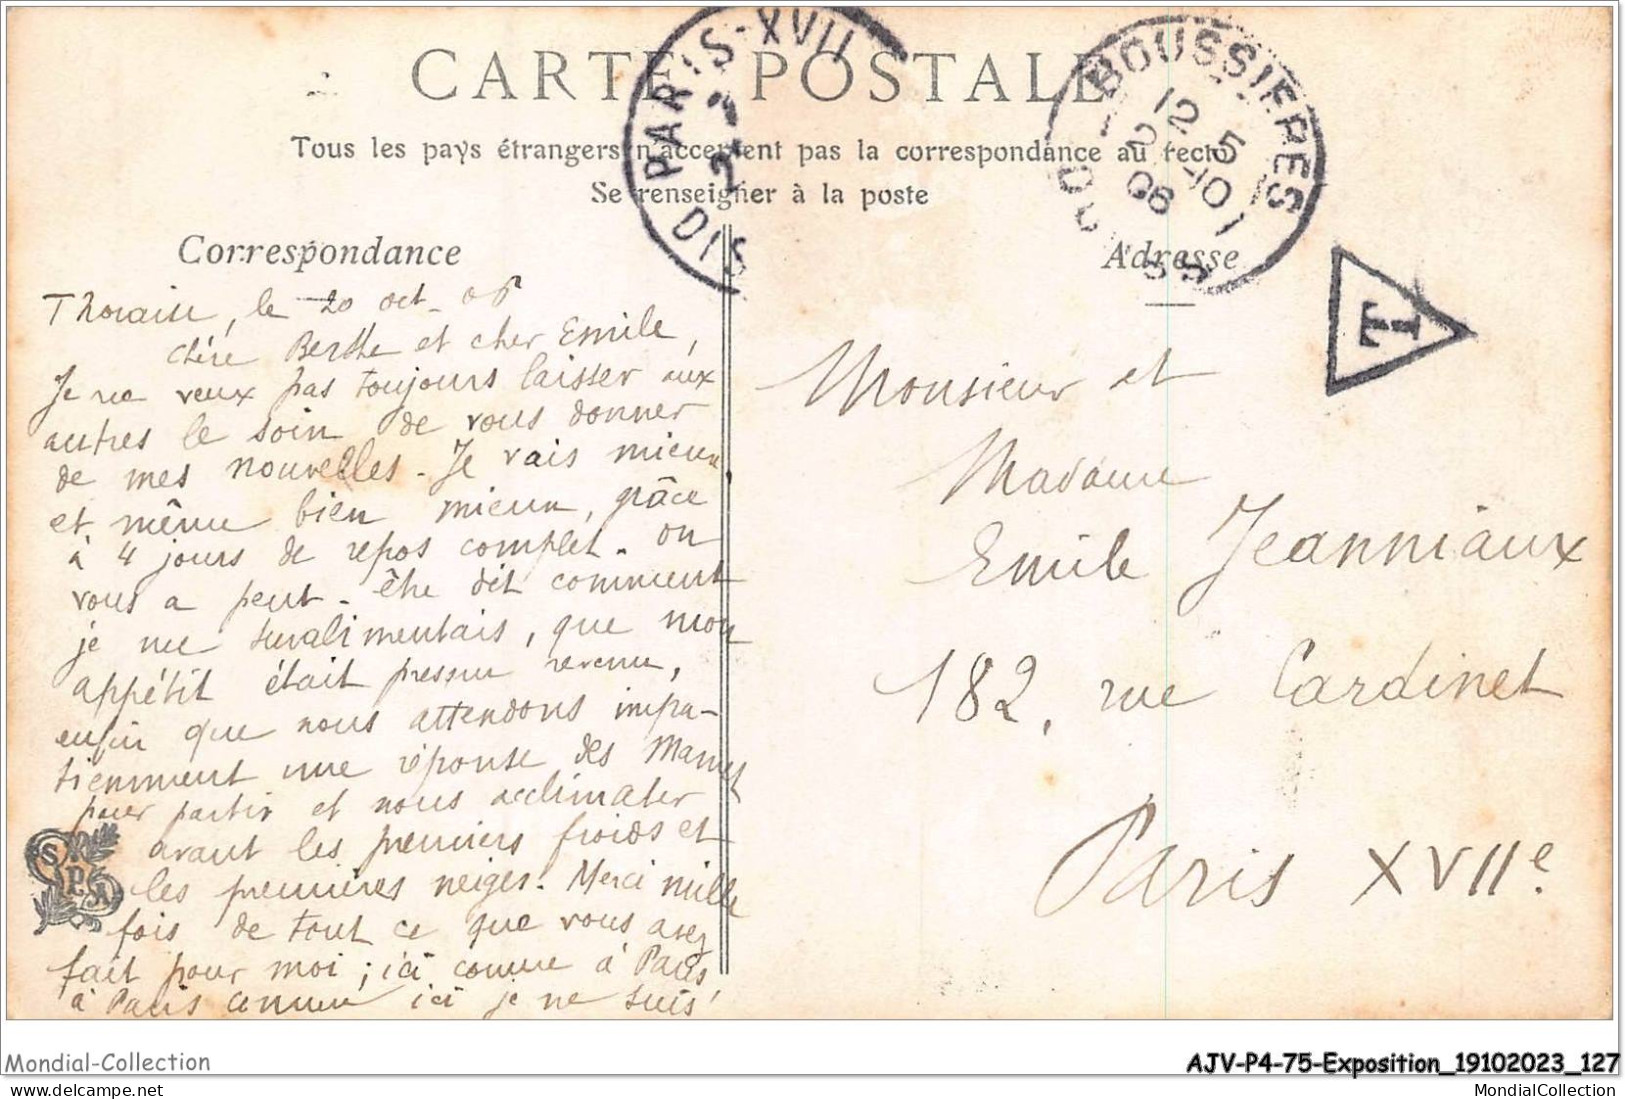 CARTE POSTALE
Tous les pays étrangers n'acceptent pas la correspondance au recto
Se renseigner à la poste
PARIS-XVII
DIS
BOUSSIERES
12 5
21-10
06
DOUBS
T
Correspondance
Adresse
Thoraise, le 20 oct. 06
Chère Berthe et cher Emile,
Je ne veux pas toujours laisser aux
autres le soin de vous donner
de mes nouvelles. Je vais mieux,
et même bien mieux, grâce
à 4 jours de repos complet. On
vous a peut-être dit comment
je me suralimentais, que mon
appétit était presque revenu,
enfin que nous attendons impa-
tiemment une réponse des
pour partir et nous acclimater
avant les premiers froids et
les premières neiges. Merci mille
fois de tout ce que vous avez
fait pour moi ; ici comme à Paris
à Paris comme ici je ne suis
SPA
Monsieur et
Madame
Emile Jeanniaux
182, rue Cardinet
Paris XVIIe.
Mondial-Collection
AJV-P4-75-Exposition_19102023_127
delcampe.net
MondialCollection